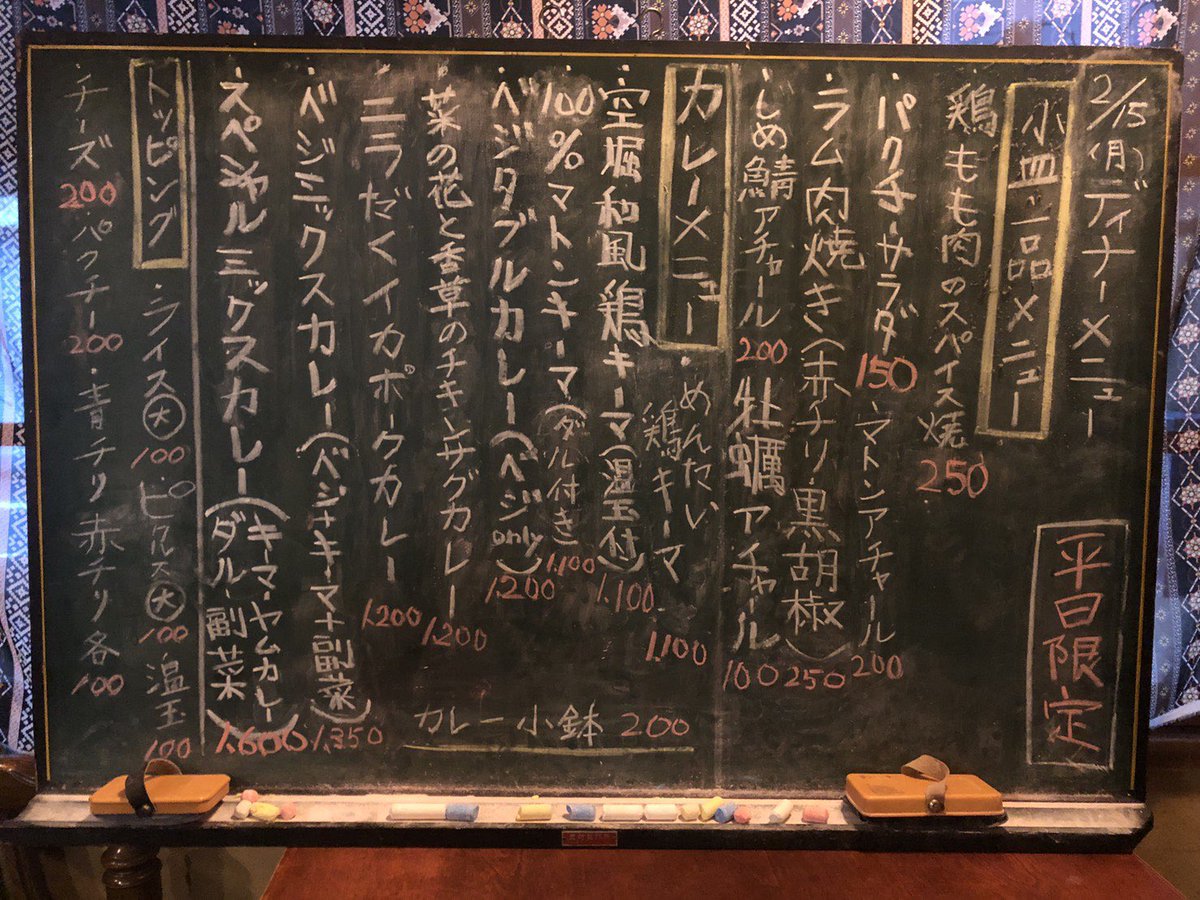 2/15(月)ディナーメニュー
平日限定
小皿・一品メニュー
・鶏もも肉のスパイス焼 250
・パクチーサラダ 150
・マトンアチャール 200
・ラム肉焼き(赤チリ・黒胡椒) 250
・じめ鯖アチャール 200
牡蠣アチャール 100
カレーメニュー
・めんたい鶏キーマ 1,100
・空堀和風鶏キーマ(温玉付) 1,100
・100%マトンキーマ(ダル付き) 1,100
・ベジタブルカレー(ベジonly) 1,200
・菜の花と香草のチキンサグカレー 1,200
・ニラだくイカポークカレー 1,200
・ベジミックスカレー(ベジ+キーマ+副菜) 1,350
・スペシャルミックスカレー(キーマ・ヤムカレー
ダル・副菜) 1,600
カレー小鉢 200
トッピング
・ライス(大) 100
・ピクルス(大) 100
・温玉 100
・チーズ 200
・パクチー 200
・青チリ 赤チリ各 100